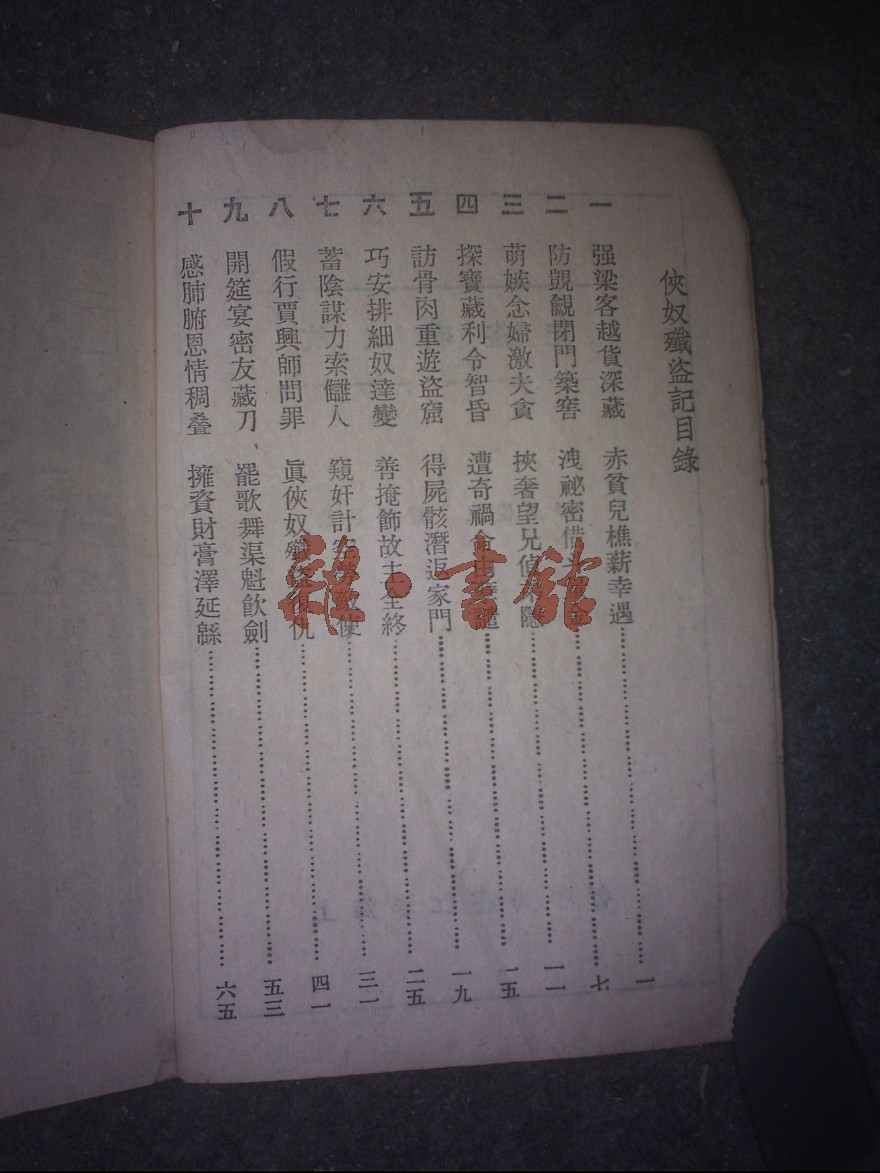 俠奴殲盜記目錄
一 强梁客越貨深藏 赤貧兒樵薪幸遇 一
二 防覬覦閉門築窖 洩祕密借 七
三 萌嫉念婦激夫貪 挾奢望兄偵 隱 一一
四 探寶藏利令智昏 遭奇禍命 一五
五 訪骨肉重遊盜窟 得屍骸潛返家門 一九
六 巧安排細奴達變 善掩飾故主全終 二五
七 蓄陰謀力索讎人 窺奸計 使 三一
八 假行賈興師問罪 眞俠奴殲盜復仇 四一
九 開筵宴密友藏刀 罷歌舞渠魁飲劍 五三
十 感肺腑恩情稠叠 擁資財膏澤延緜 六五
雜·書館